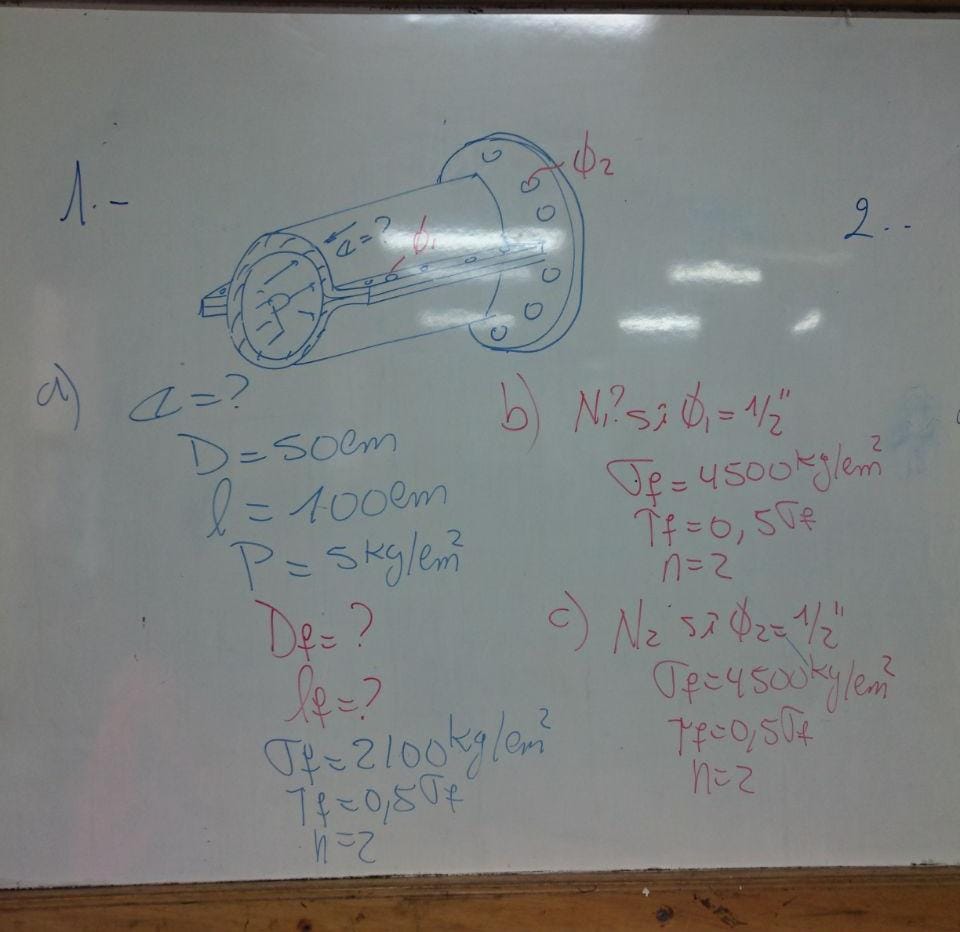 1.-
ϕ2
a=?
ϕ1
P
2..
a) a=?
D=50cm
l=100cm
P=5kg/cm²
Df=?
lf=?
σf=2100kg/cm²
τf=0,5σf
n=2
b) N1? si ϕ1=1/2"
σf=4500kg/cm²
τf=0,5σf
n=2
c) N2 si ϕ2=1/2"
σf=4500kg/cm²
τf=0,5σf
n=2